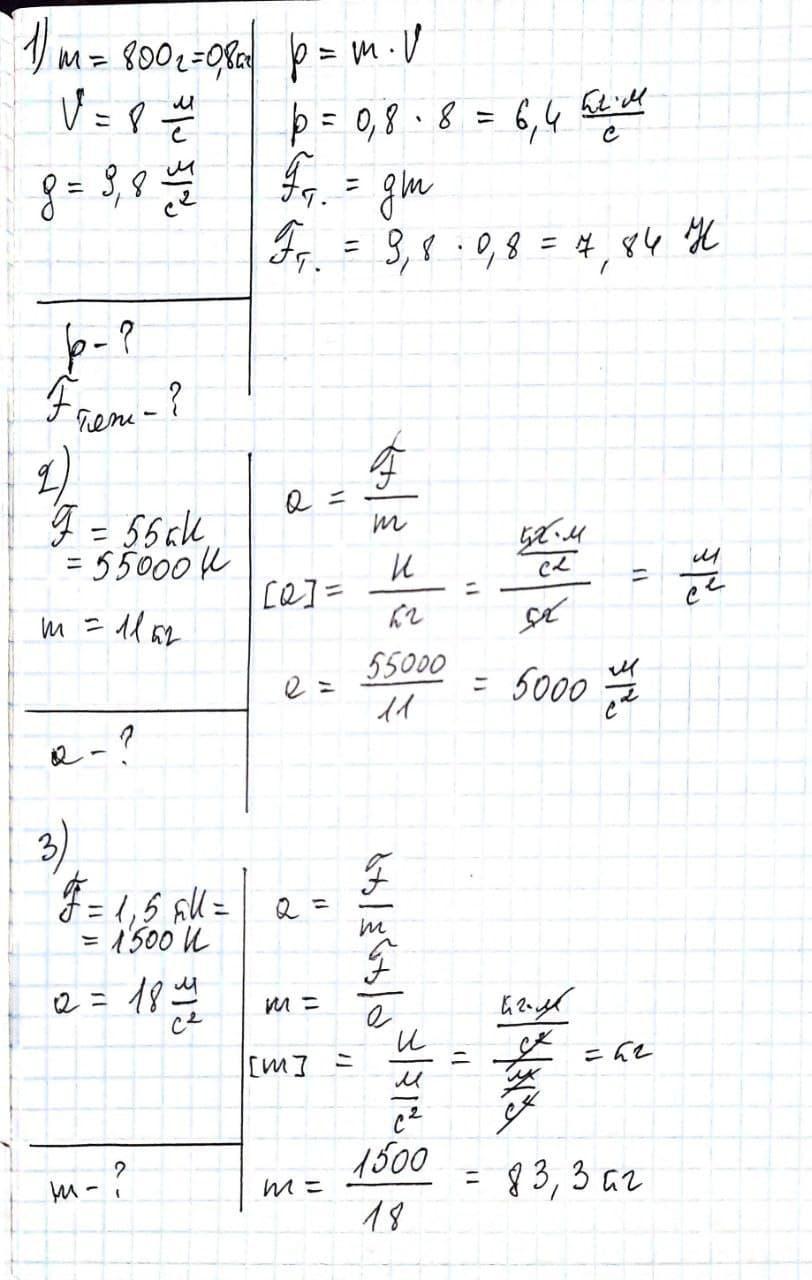 1) m = 800г = 0,8кг
V = 8 м/с
g = 9,8 м/с²
p - ?
Fтяж - ?
p = m · V
p = 0,8 · 8 = 6,4 кг·м/с
Fт. = gm
Fт. = 9,8 · 0,8 = 7,84 Н
2)
F = 55кН
= 55000 Н
m = 11 кг
a - ?
a = F/m
[a] = Н/кг = (кг·м/с²)/кг = м/с²
a = 55000/11 = 5000 м/с²
3)
F = 1,5 кН =
= 1500 Н
a = 18 м/с²
m - ?
a = F/m
m = F/a
[m] = Н/(м/с²) = (кг·м/с²)/(м/с²) = кг
m = 1500/18 = 83,3 кг